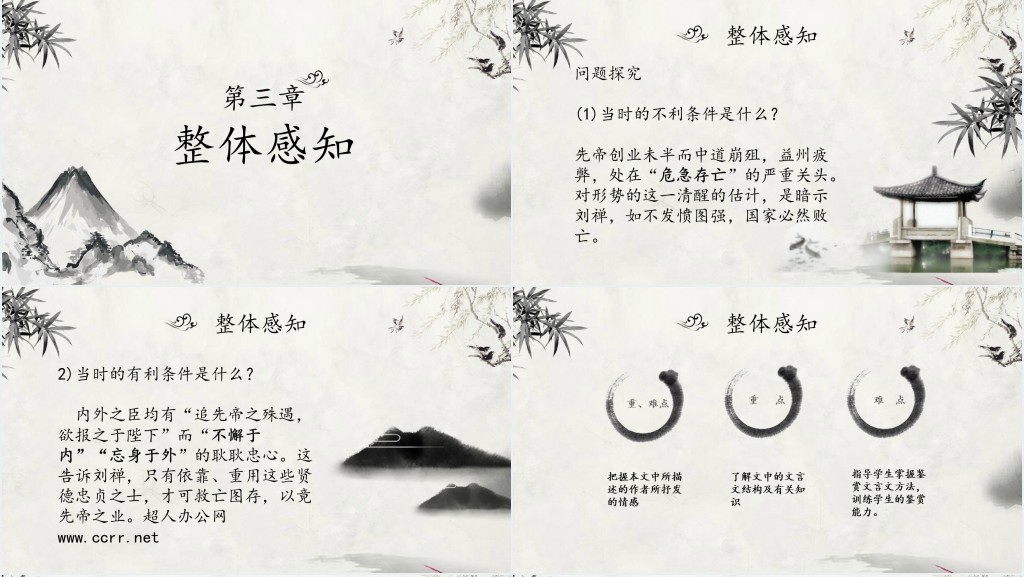 第三章
整体感知
整体感知
问题探究
(1)当时的不利条件是什么?
先帝创业未半而中道崩殂，益州疲
弊，处在“危急存亡”的严重关头。
对形势的这一清醒的估计，是暗示
刘禅，如不发愤图强，国家必然败
亡。
整体感知
2)当时的有利条件是什么?
内外之臣均有“追先帝之殊遇，
欲报之于陛下”而“不懈于
内”“忘身于外”的耿耿忠心。这
告诉刘禅，只有依靠、重用这些贤
德忠贞之士，才可救亡图存，以竟
先帝之业。超人办公网
www.ccrr.net
整体感知
重、难点
重 点
难 点
把握本文中所描
述的作者所抒发
的情感
了解文中的文言
文结构及有关知
识
指导学生掌握鉴
赏文言文方法，
训练学生的鉴赏
能力。